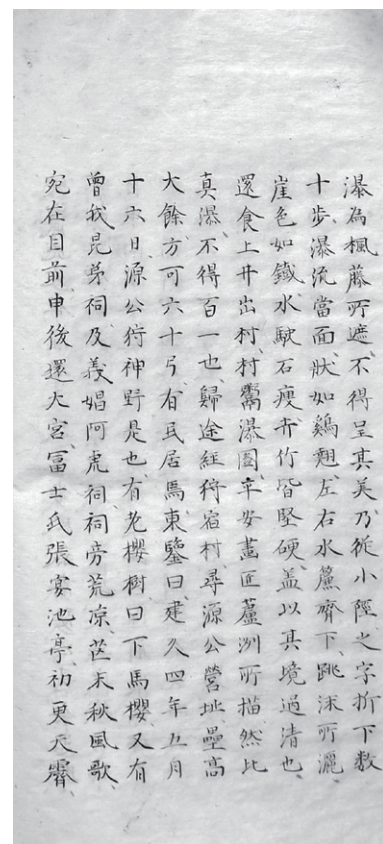 瀑為楓藤所遮、不得呈其美、乃從小陘之字折下數
十步、瀑流當面、狀如鷄翹、左右水簾齊下、跳沫所灑、
崖色如鐵、水駛石瘦、卉竹皆堅硬、蓋以其境過清也、
還食上井出村、村鬻瀑圖、幸安畫匠蘆洲所描、然比
真瀑、不得百一也、歸途経狩宿村、尋源公營址、壘高
大餘、方可六十弓、有民居焉、東鑒曰、建久四年五月
十六日、源公狩神野是也、有老櫻樹、曰下馬櫻、又有
曾我昆弟祠、及義娼阿虎祠、祠旁荒凉、芒末秋風歌、
宛在目前、申後還大宮、冨士氏張宴池亭、初更天霽、